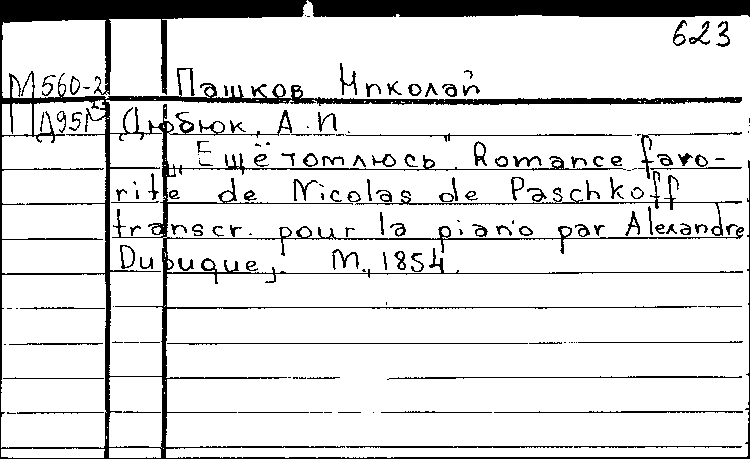 623
М560-2 Пашков Николай
Д951 Дюбюк, А.И.
„Ещё томлюсь" Romance favo-
rite de Nicolas de Paschkoff
transcr. pour la piano par Alexandre
Dubuque,. М., 1854.